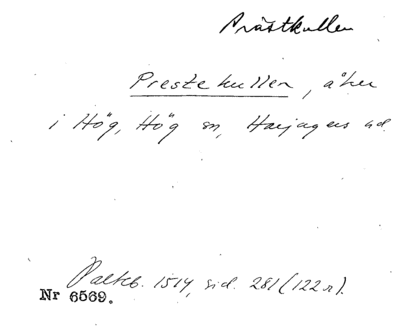 Prästkullen
Prestekullen, åker
i Hög, Hög sn, Harjagers hd
Palteb. 1514, sid. 281 (122 r).
Nr 6569.